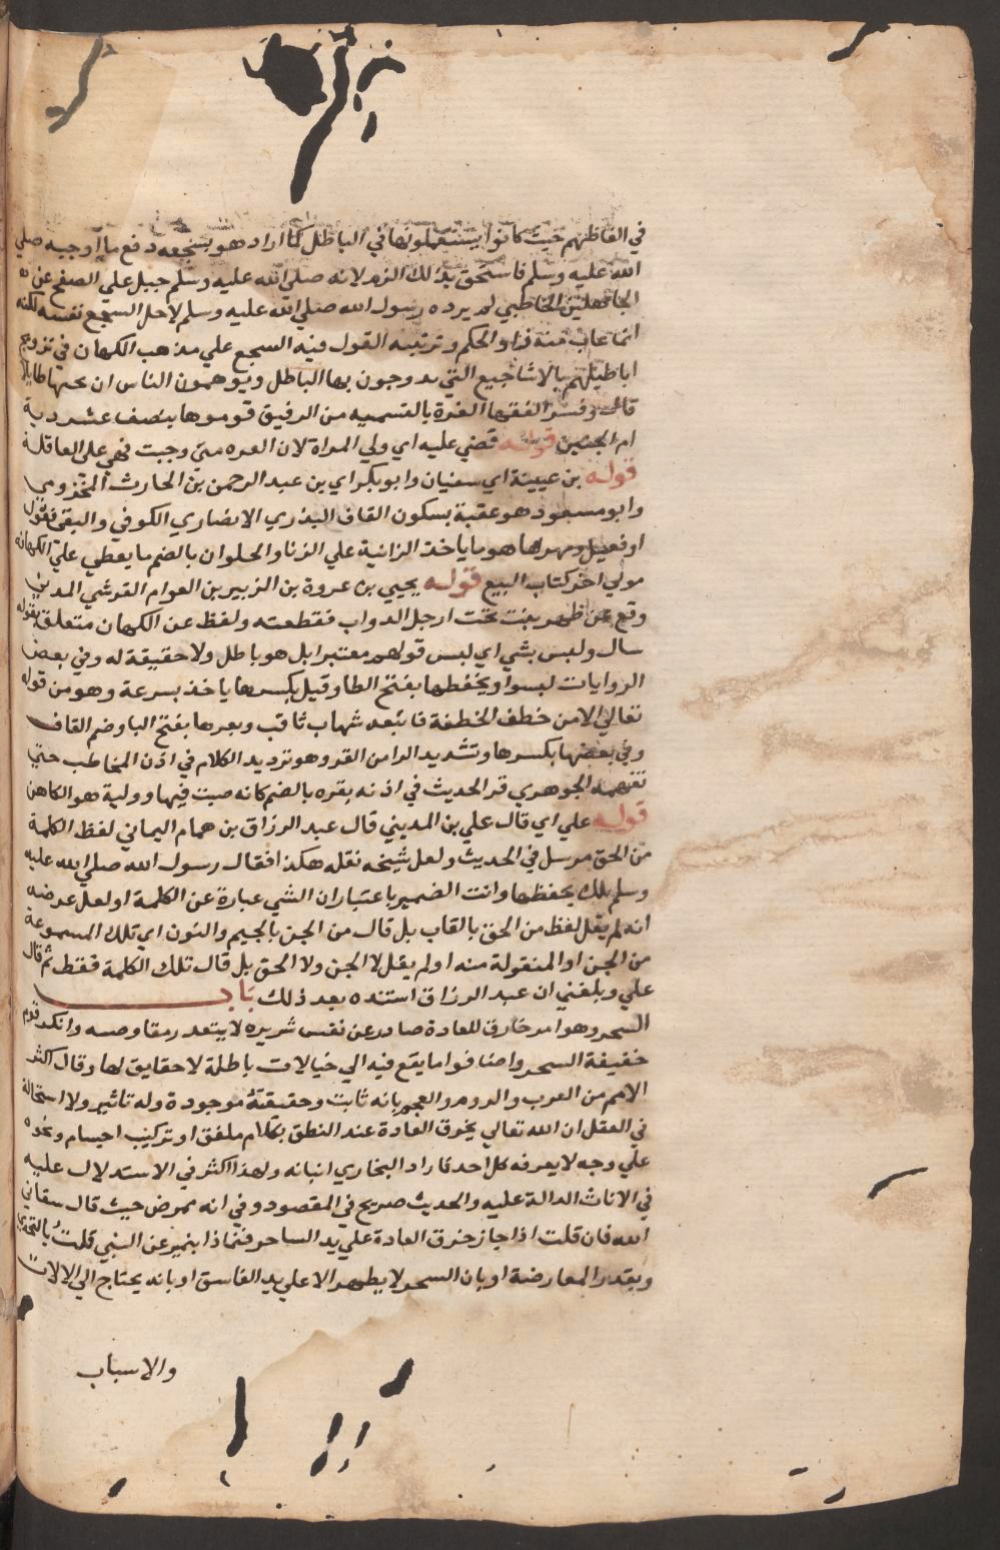 في الفاظهم حيث كانوا يستعملونها في الباطل كما اراد هو بسجعه دفع ما اوجبه صلي
الله عليه وسلم فاستحق بذلك الذم لانه صلي الله عليه وسلم جبل علي الصفح عن
الجاهلين الخطابي لم يرده رسول الله صلي الله عليه وسلم لاجل السجع نفسه لكنه
انما عاب منه رد الحكم وترتيبه القول فيه السجع علي مذهب الكهان في تزويج
اباطيلهم بالاشاجيع التي يروجون بها الباطل ويوهمون الناس ان تحتها طايلا
قال وفسر الفقها الغرة بالنسمه من الرقيق قوموها بنصف عشر دية
ام الجنين قوله قضي عليه اي ولي المراة لان الغره متي وجبت فهي علي العاقلة
قوله بن عيينة اي سفيان وابو بكر اي بن عبد الرحمن بن الحارث المخزومي
وابو مسعود هو عقبة بسكون القاف البدري الانصاري الكوفي والبغي فعول
او فعيل ومهرها هو ما ياخذ الزانية علي الزنا والحلوان بالضم ما يعطي علي الكهانه
مر في اخر كتاب البيع قوله يحيي بن عروة بن الزبير بن العوام القرشي المديني
وقع عن ظهر بيت تحت ارجل الدواب فقطعته ولفظ عن الكهان متعلق بقوله
سال وليس بشي اي ليس قولهم معتبرا بل هو باطل ولا حقيقة له وفي بعض
الروايات ليسوا ويخطفها بفتح الطا وقيل بكسرها ياخذ بسرعة وهو من قوله
تعالي الا من خطف الخطفة فاتبعه شهاب ثاقب ويقرها بفتح اليا وضم القاف
وفي بعضها بكسرها وتشديد الرا من القر وهو ترديد الكلام في اذن المخاطب حتي
تفهمه الجوهري قر الحديث في اذنه يقره بالضم كانه صبه فيها ووليه هو الكاهن
قوله علي اي قال علي بن المديني قال عبد الرزاق بن همام اليماني لفظ الكلمة
من الحق مرسل في الحديث ولعل شيخه نقله هكذا فقال رسول الله صلي الله عليه
وسلم تلك يخطفها وانت الضمير باعتبار ان الشي عبارة عن الكلمة او لعل غرضه
انه لم يقل لفظ من الحق بالقاف بل قال من الجن بالجيم والنون اي تلك المسموعة
من الجن او المنقولة منه او لم يقل لا الجن ولا الحق بل قال تلك الكلمة فقط ثم قال
علي وبلغني ان عبد الرزاق اسنده بعد ذلك باب
السحر وهو امر خارق للعادة صادر عن نفس شريره لا يتعذر معارضته وانكر قوم
حقيقة السحر واضافوا ما يقع فيه الي خيالات باطلة لا حقايق لها وقال اكثر
الامم من العرب والروم والعجم بانه ثابت وحقيقته موجودة وله تاثير ولا استحالة
في العقل ان الله تعالي يخرق العادة عند النطق بكلام ملفق او تركيب اجسام ونحوه
علي وجه لا يعرفه كل احد فاراد البخاري اثباته ولهذا اكثر في الاستدلال عليه
في الايات الدالة عليه والحديث صريح في المقصود وفي انه مرض حيث قال شفاني
الله فان قلت اذا جاز خرق العادة علي يد الساحر فبماذا يتميز عن النبي قلت بالتحدي
وبتعذر المعارضة او بان السحر لا يظهر الا علي يد الفاسق او بانه يحتاج الي الالات
والاسباب